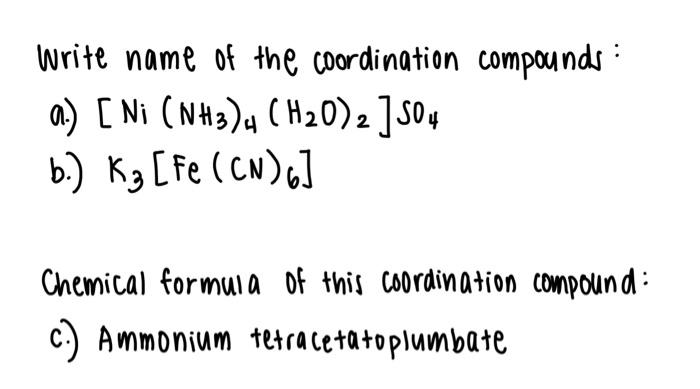 Write name of the coordination compounds :
a.) [ Ni (NH3)4 (H2O)2 ] SO4
b.) K3 [Fe (CN)6]
Chemical formula of this coordination compound :
c.) Ammonium tetracetatoplumbate